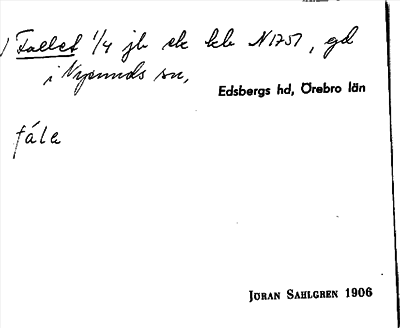 Fallet 1/4 jb sk kb N1751, gd
i Nysunds sn,
Edsbergs hd, Örebro län
fála
JÖRAN SAHLGREN 1906